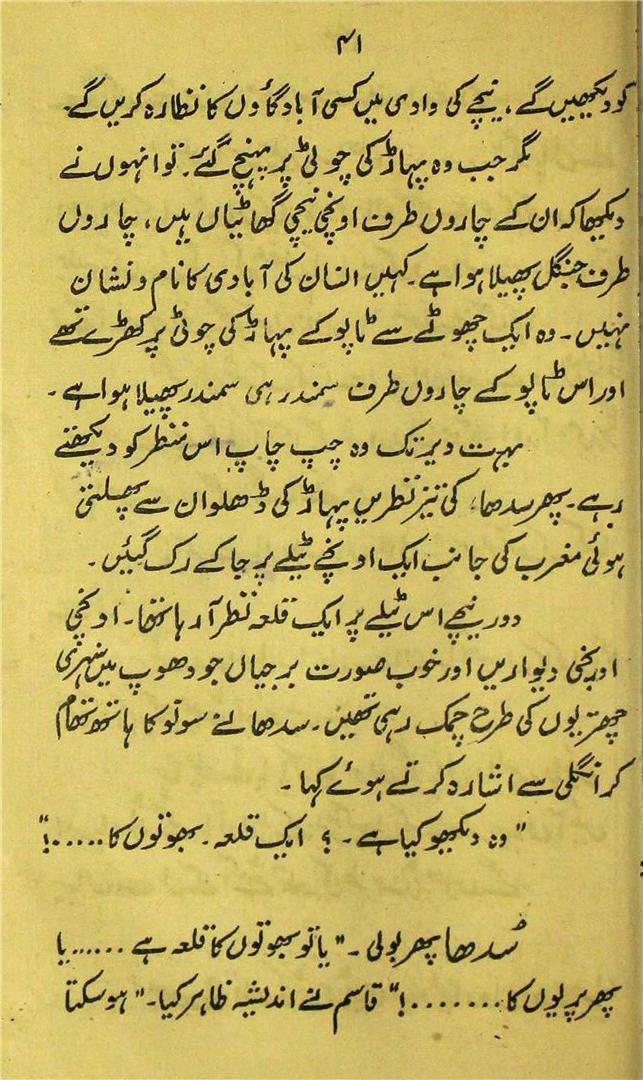 ۴۱
کو دیکھیں گے، نیچے کی وادی میں کسی آباد گاؤں کا نظارہ کریں گے۔
مگر جب وہ پہاڑ کی چوٹی پر پہنچ گئے۔ تو انہوں نے
دیکھا کہ ان کے چاروں طرف اونچی نیچی گھاٹیاں ہیں، چاروں
طرف جنگل پھیلا ہوا ہے۔ کہیں انسان کی آبادی کا نام و نشان
نہیں۔ وہ ایک چھوٹے سے ٹاپو کے پہاڑ کی چوٹی پر کھڑے تھے
اور اس ٹاپو کے چاروں طرف سمندر ہی سمندر پھیلا ہوا ہے۔
بہت دیر تک وہ چپ چاپ اس منظر کو دیکھتے
رہے۔ پھر سدھا، کی تیز نظریں پہاڑ کی ڈھلوان سے پھسلتی
ہوئی مغرب کی جانب ایک اونچے ٹیلے پر جا کے رک گئیں۔
دور نیچے اس ٹیلے پر ایک قلعہ نظر آ رہا تھا۔ اونچی
اونچی دیواریں اور خوب صورت برجیاں جو دھوپ میں سنہری
چھتریوں کی طرح چمک رہی تھیں۔ سدھا نے سوتو کا ہاتھ تھام
کر انگلی سے اشارہ کرتے ہوئے کہا۔
"وہ دیکھو کیا ہے۔؟ ایک قلعہ۔ بھوتوں کا.....!"
سُدھا پھر بولی۔ "یا تو بھوتوں کا قلعہ ہے ...... یا
پھر پریوں کا........!" قاسم نے اندیشہ ظاہر کیا۔ "ہو سکتا